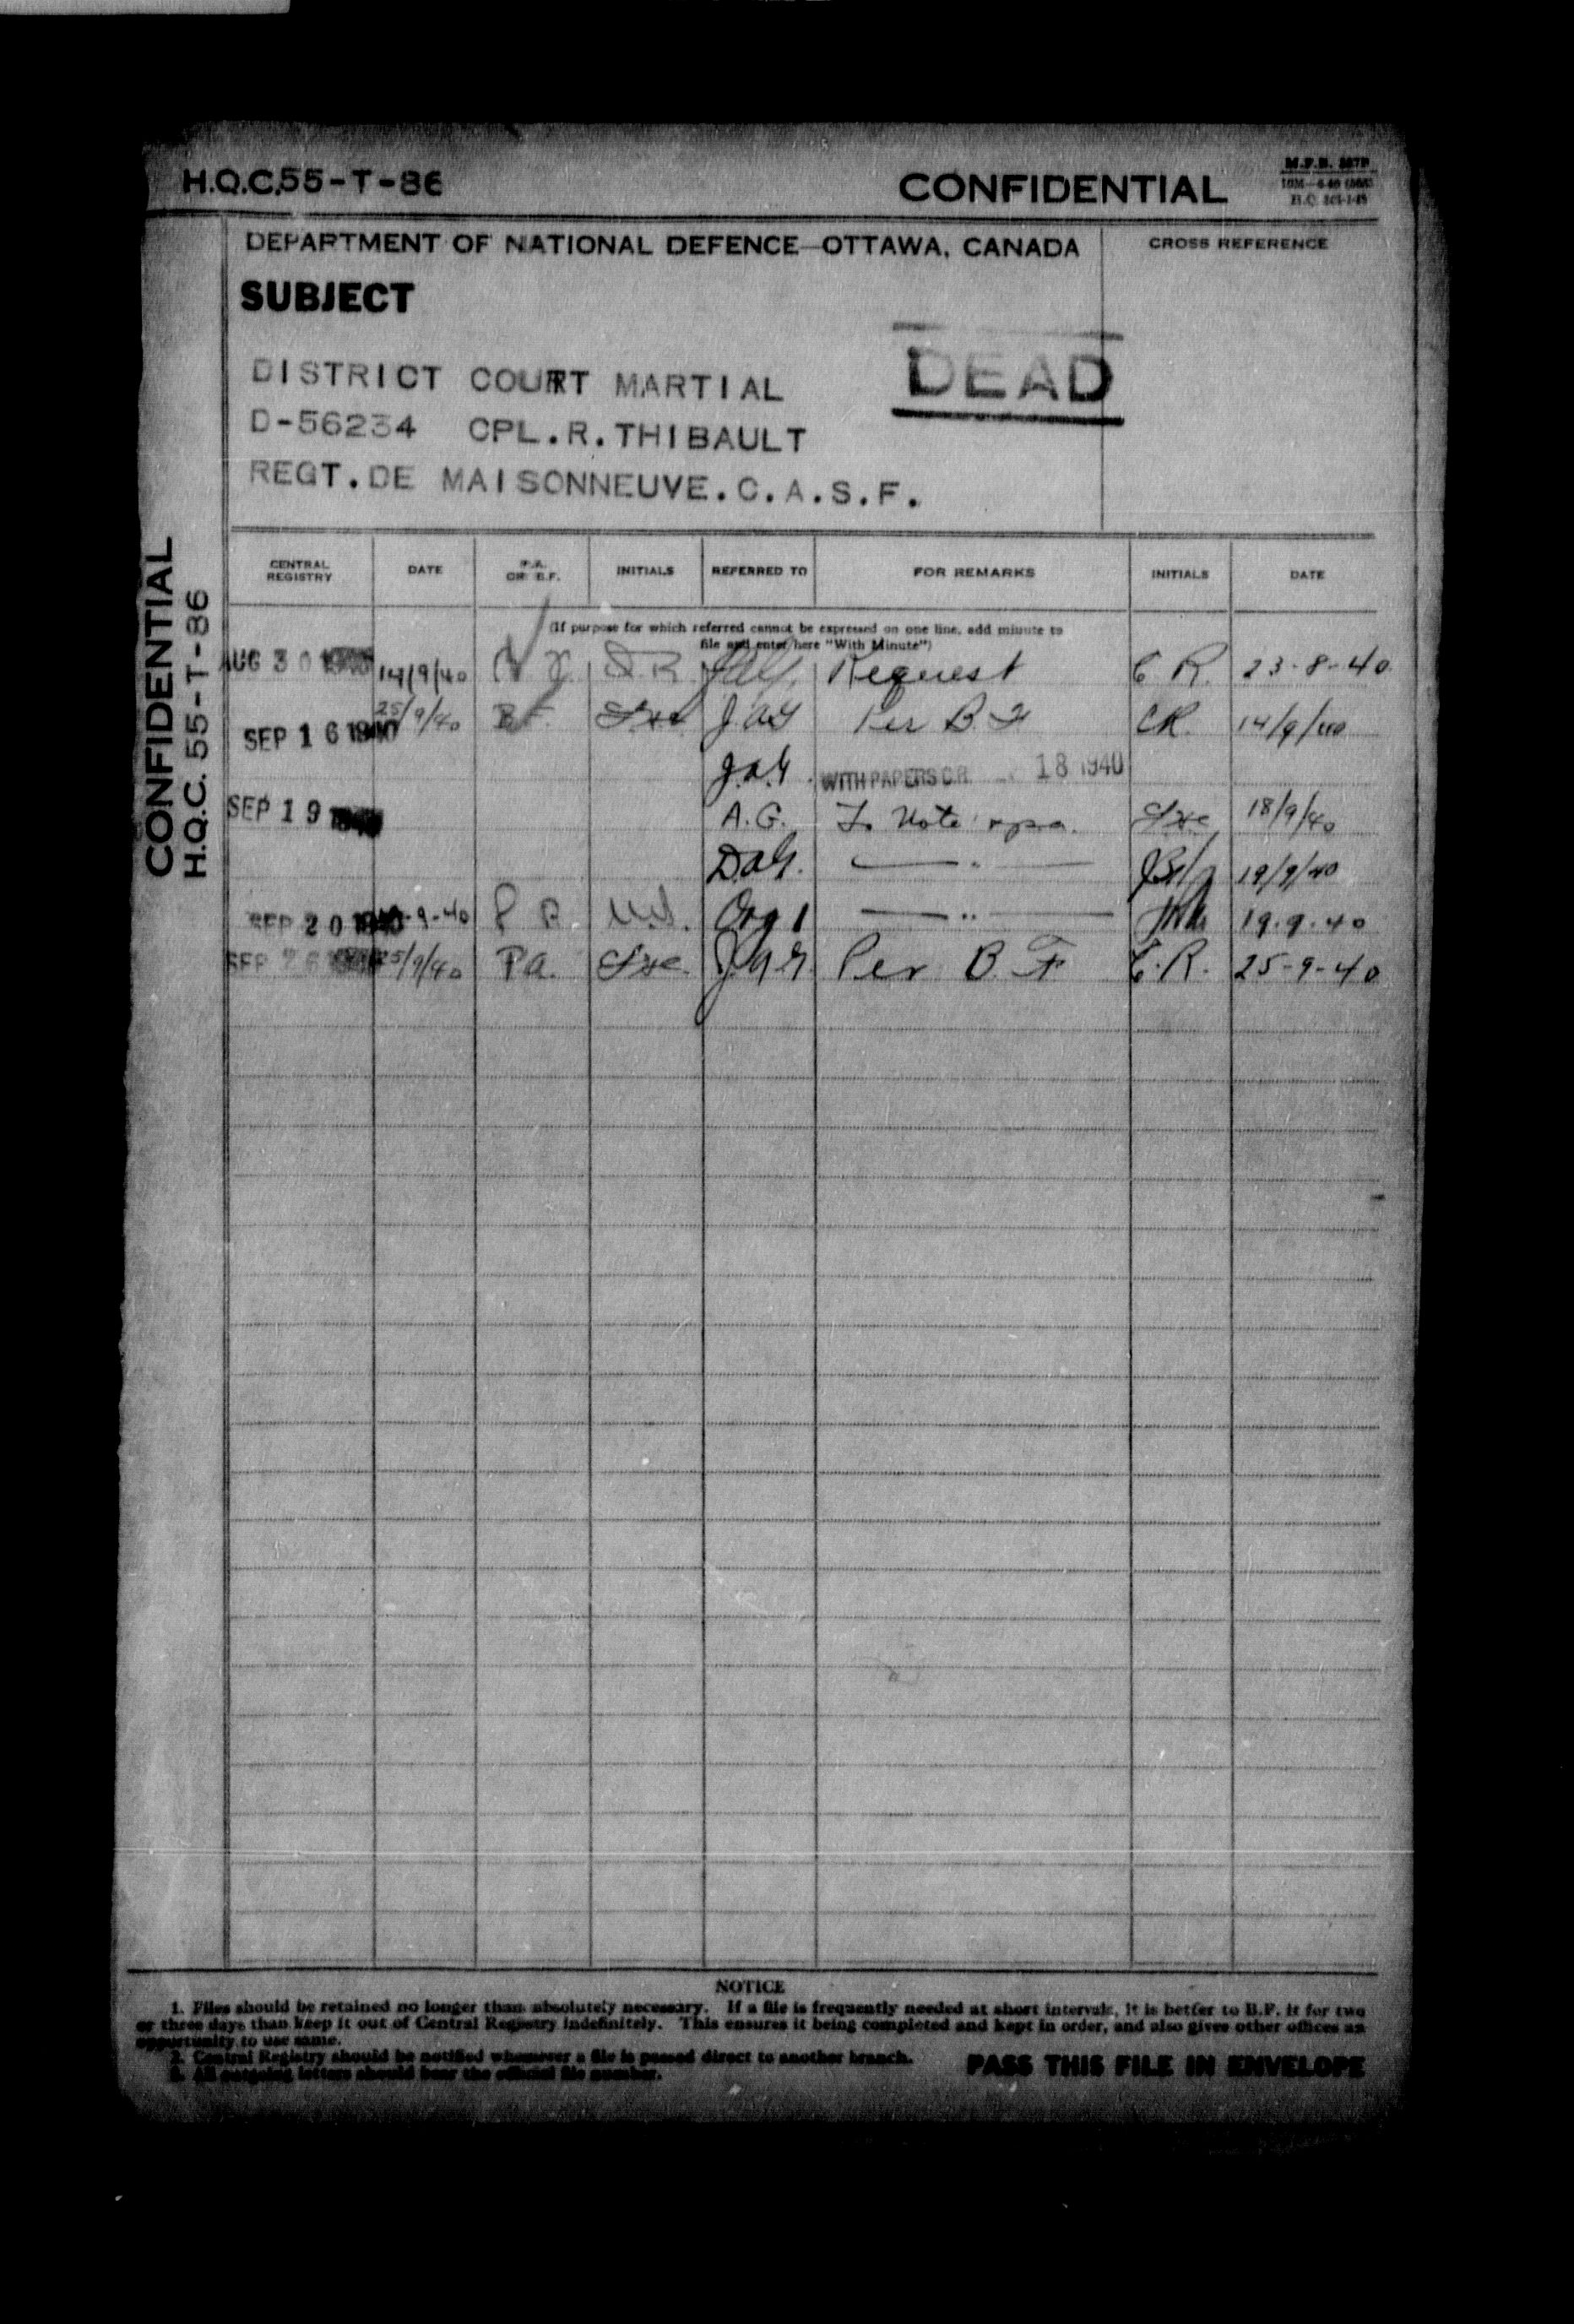 H.Q.C. 55-T-86
CONFIDENTIAL
DEPARTMENT OF NATIONAL DEFENCE—OTTAWA, CANADA
CROSS REFERENCE
SUBJECT
DEAD
DISTRICT COURT MARTIAL
D-56234 CPL.R.THIBAULT
REGT.DE MAISONNEUVE.C.A.S.F.
CONFIDENTIAL
H.Q.C. 55-T-86
CENTRAL REGISTRY DATE P.A. OR B.F. INITIALS REFERRED TO FOR REMARKS INITIALS DATE
(If purpose for which referred cannot be expressed on one line, add minute to
file and enter here "With Minute")
AUG 30 14/9/40 JAG Request C R. 23-8-40
SEP 16 1940 25/9/40 B.F. JAG Per B F CR. 14/9/40
J.A.G. WITH PAPERS C.R. 18 1940
SEP 19 A.G. To Note 18/9/40
D.A.G. — " — 19/9/40
SEP 20 9-40 P A. Org 1 — " — 19.9.40
SEP 26 25/9/40 P.A. J.A.G. Per B.F. C.R. 25-9-40
NOTICE
1. Files should be retained no longer than absolutely necessary. If a file is frequently needed at short intervals, it is better to B.F. it for two
or three days than keep it out of Central Registry indefinitely. This ensures it being completed and kept in order, and also gives other offices an
opportunity to use same.
2. Central Registry should be notified whenever a file is passed direct to another branch.
3. All outgoing letters should bear the official file number.
PASS THIS FILE IN ENVELOPE